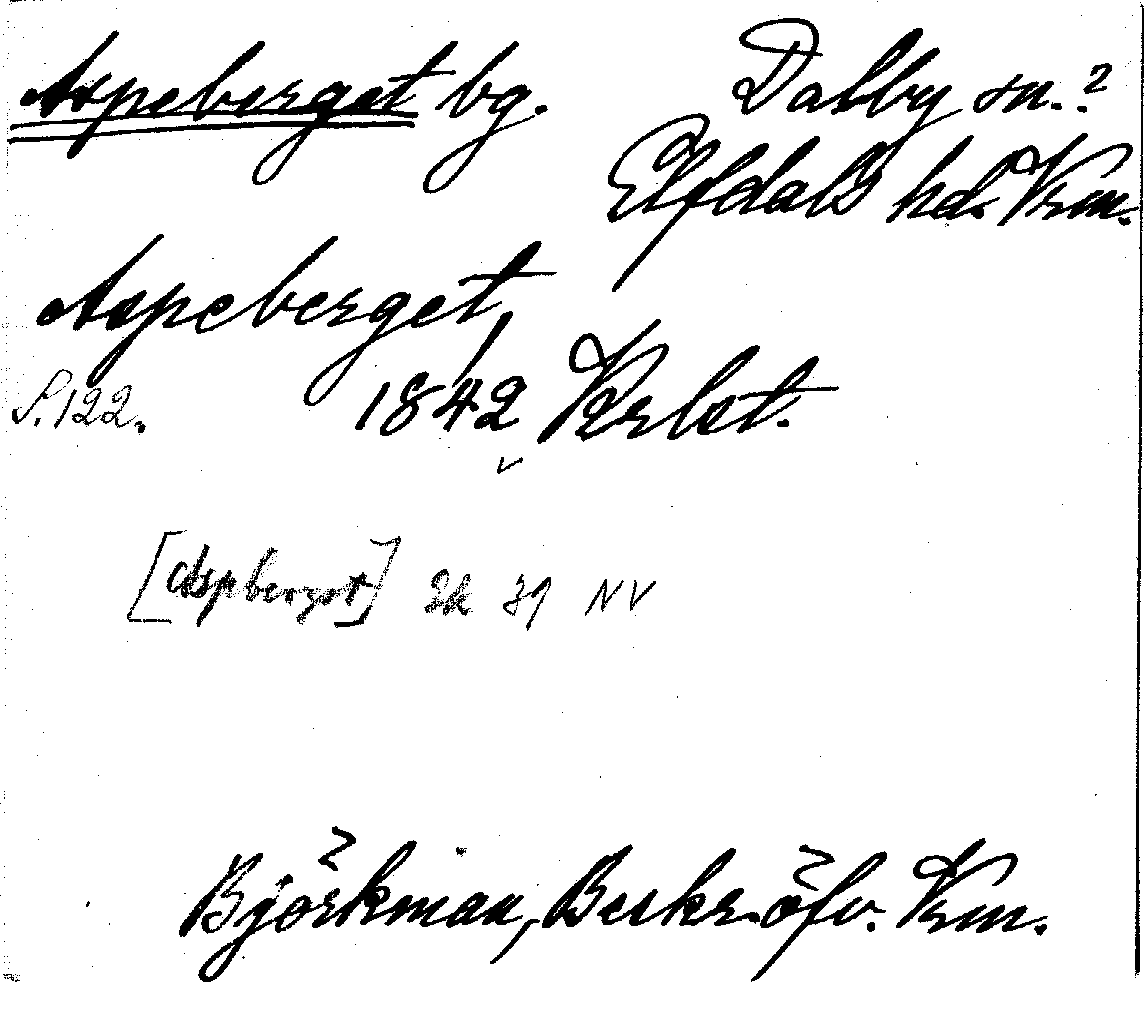 Aspeberget bg. Dalby sn.?
Elfdals hd. Vrm.
Aspeberget,
S. 122. 1842 Vrbst.
[Aspberget] Gk 39 NV
Björkman, Beskr. öfv. Vrm.